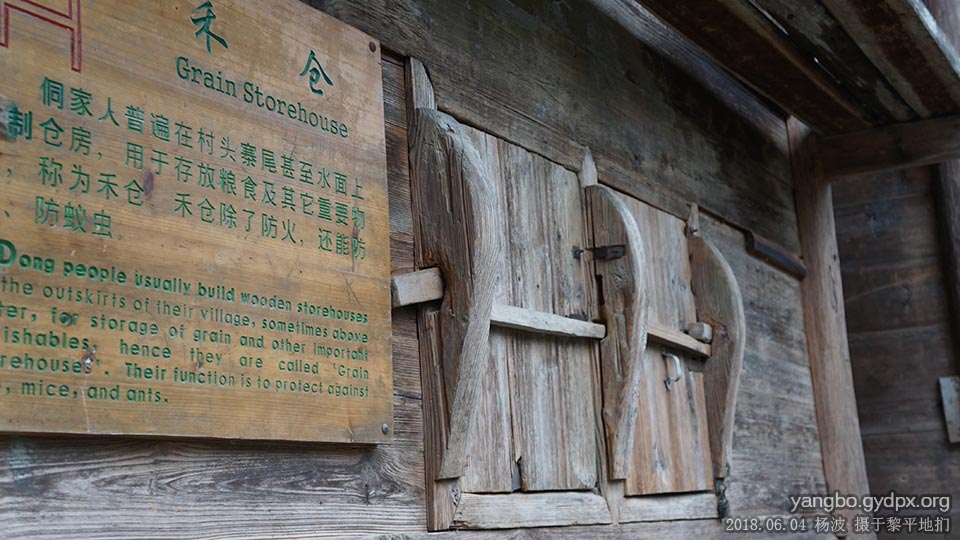 禾仓
Grain Storehouse
侗家人普遍在村头寨尾甚至水面上
制仓房，用于存放粮食及其它重要物
，称为禾仓，禾仓除了防火，还能防
、防蚁虫
Dong people usually build wooden storehouses
the outskirts of their village, sometimes above
ter, for storage of grain and other important
ishables, hence they are called 'Grain
rehouses'. Their function is to protect against
, mice, and ants.
yangbo.gydpx.org
2018.06.04 杨波 摄于黎平地扪